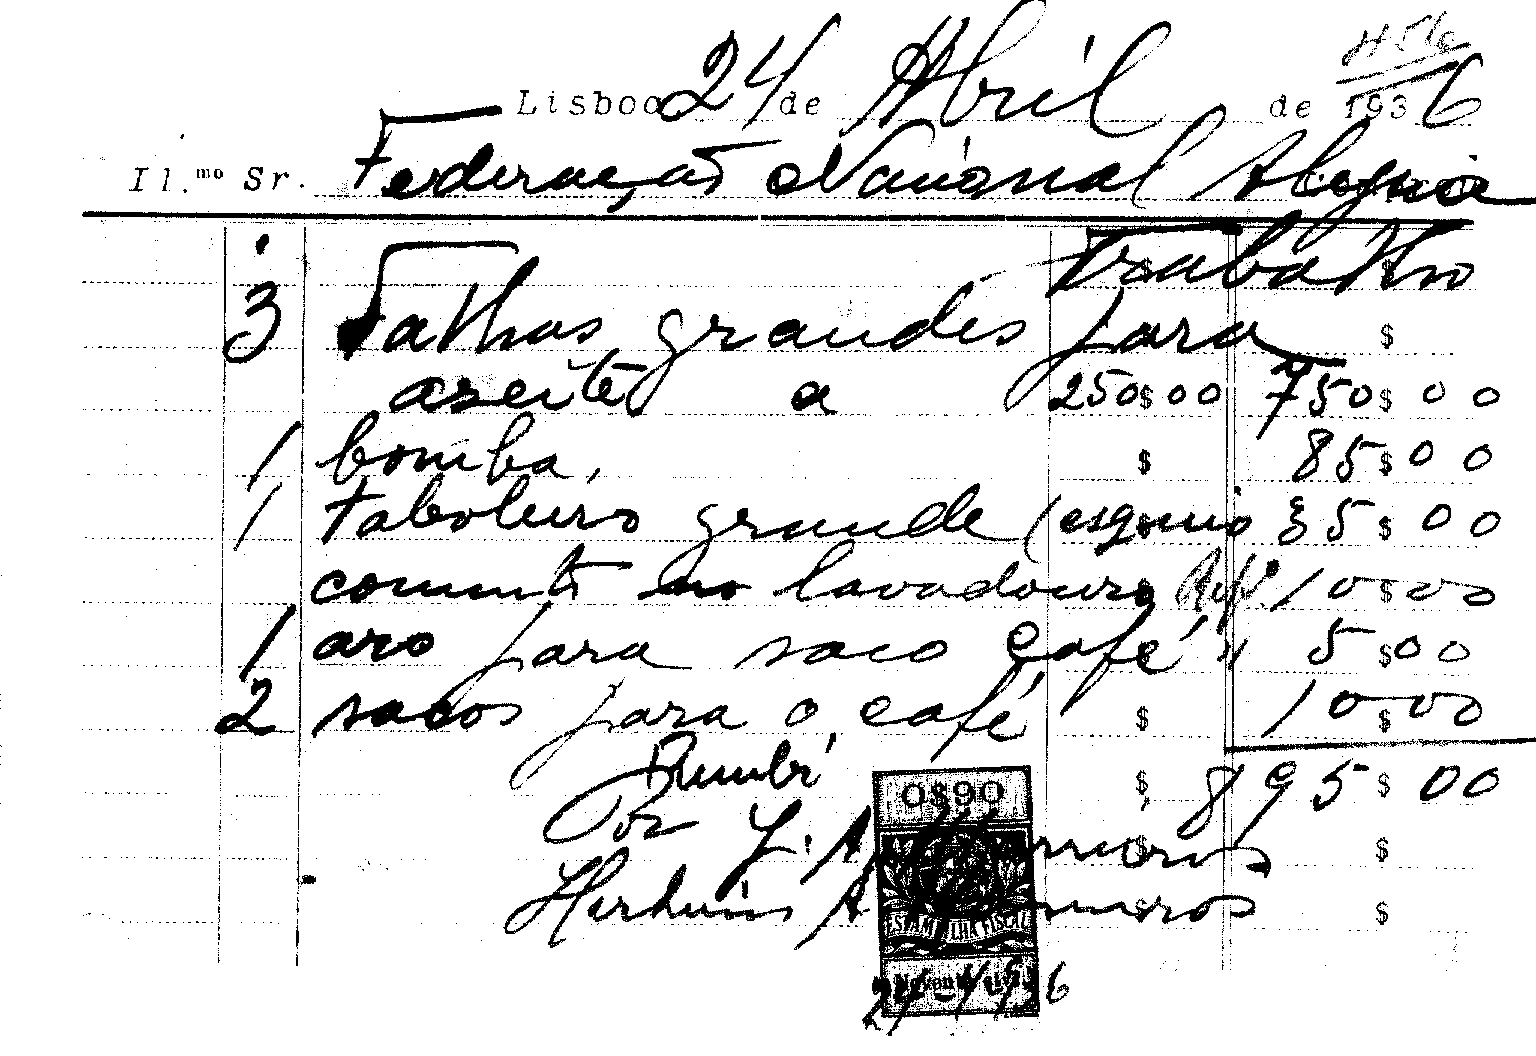 456
Lisboa 24 de Abril de 1936
Il.mo Sr. Federação Nacional Alegria
Trabalho
3 Talhas grandes para $
azeite a 250$00 750$00
1 bomba, $ 85$00
1 Taboleiro grande (esguio 35$00
lavadouro 10$00
1 aro para saco café " 5$00
2 sacos para o café $ 10$00
$ 895$00
Por J. A.
A.
0$90
ESTAMPILHA FISCAL
24/4/936